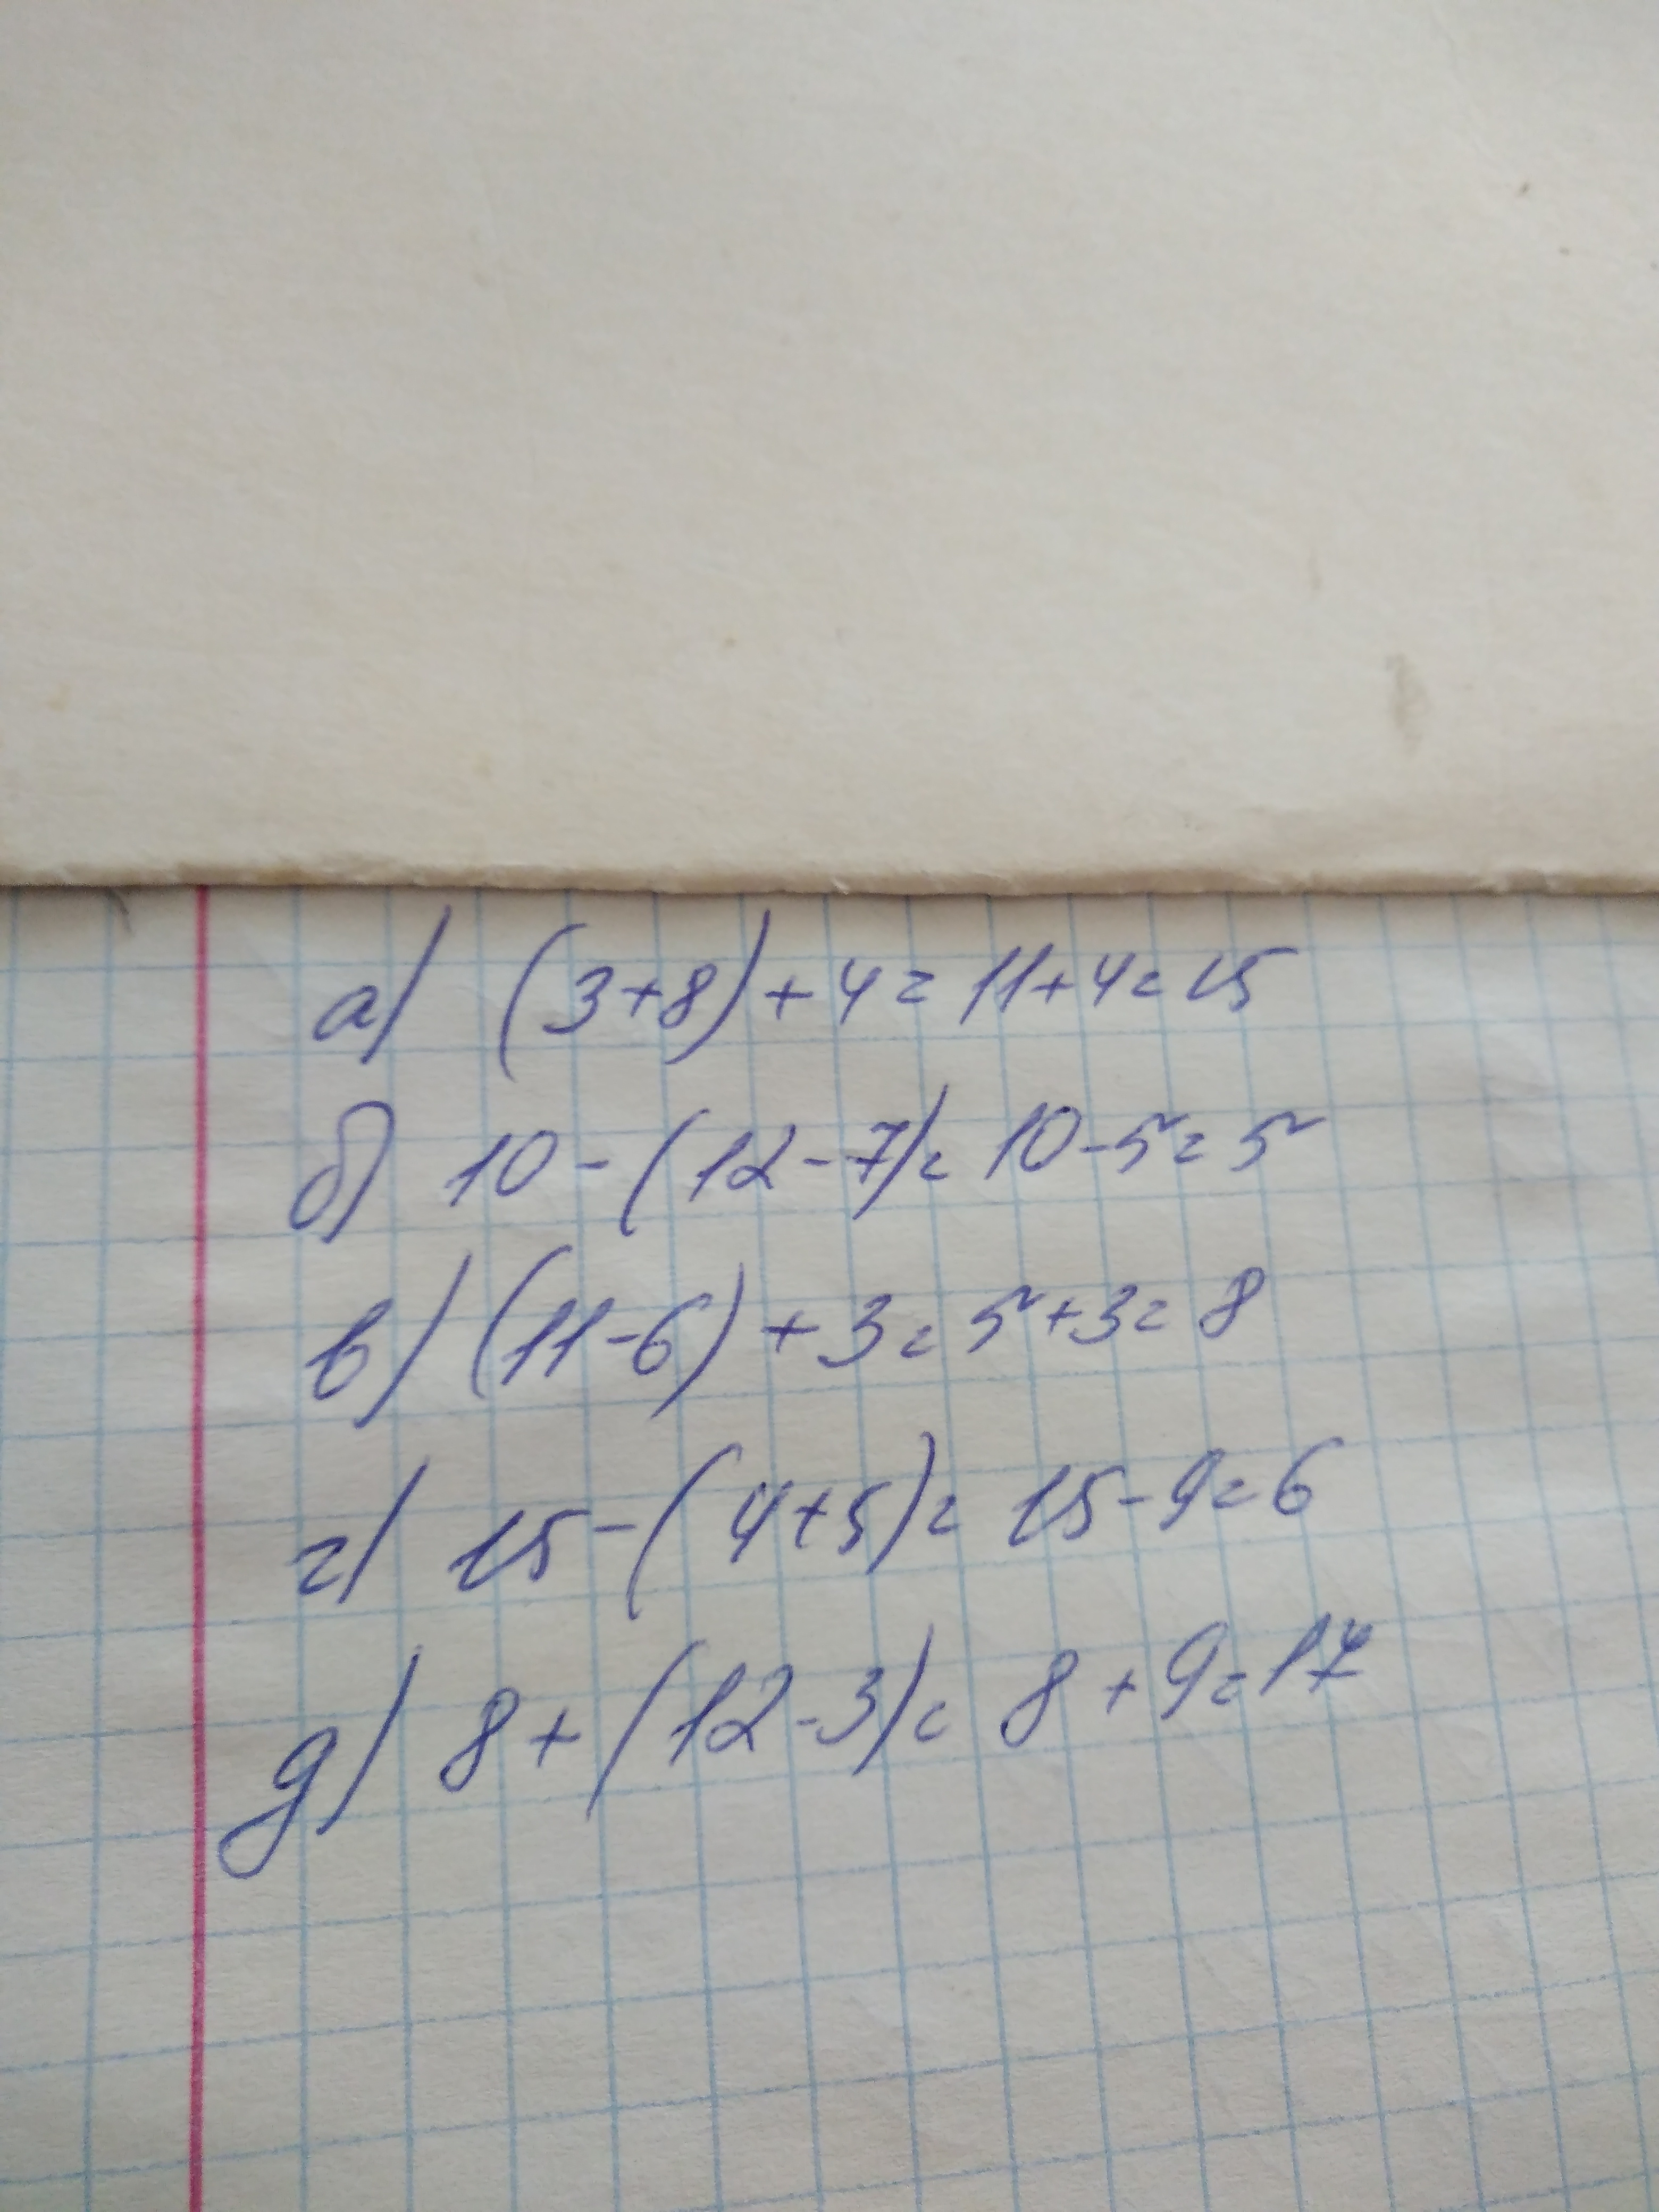 а) (3+8)+4=11+4=15
б) 10-(12-7)=10-5=5
в) (11-6)+3=5+3=8
г) 15-(4+5)=15-9=6
д) 8+(12-3)=8+9=17